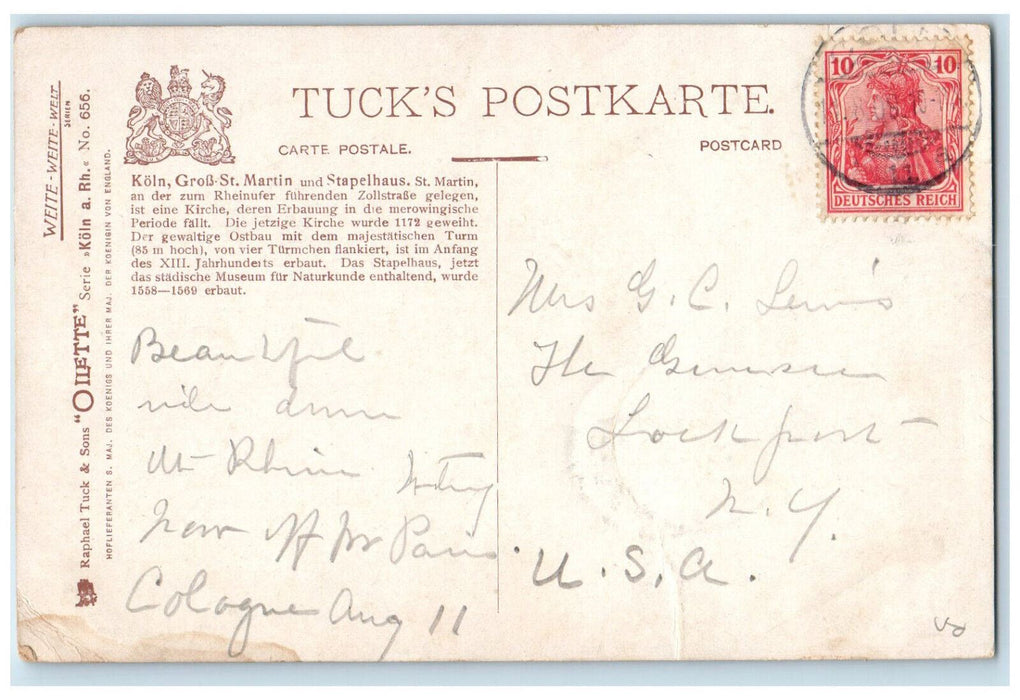 WEITE-WEITE-WELT
SERIEN
Raphael Tuck & Sons "OILETTE" Serie »Köln a. Rh.« No. 656.
HOFLIEFERANTEN S. MAJ. DES KOENIGS UND IHRER MAJ. DER KOENIGIN VON ENGLAND.
TUCK'S POSTKARTE.
CARTE POSTALE.
POSTCARD
Köln, Groß-St. Martin und Stapelhaus. St. Martin,
an der zum Rheinufer führenden Zollstraße gelegen,
ist eine Kirche, deren Erbauung in die merowingische
Periode fällt. Die jetzige Kirche wurde 1172 geweiht.
Der gewaltige Ostbau mit dem majestätischen Turm
(85 m hoch), von vier Türmchen flankiert, ist im Anfang
des XIII. Jahrhunderts erbaut. Das Stapelhaus, jetzt
das städische Museum für Naturkunde enthaltend, wurde
1558—1569 erbaut.
10 10
DEUTSCHES REICH
Beautiful
ride down
Rhine
now off for Paris
Cologne Aug 11
Mrs G. C. Lewis
The Genesee
Lockport
N.Y.
U.S.A.